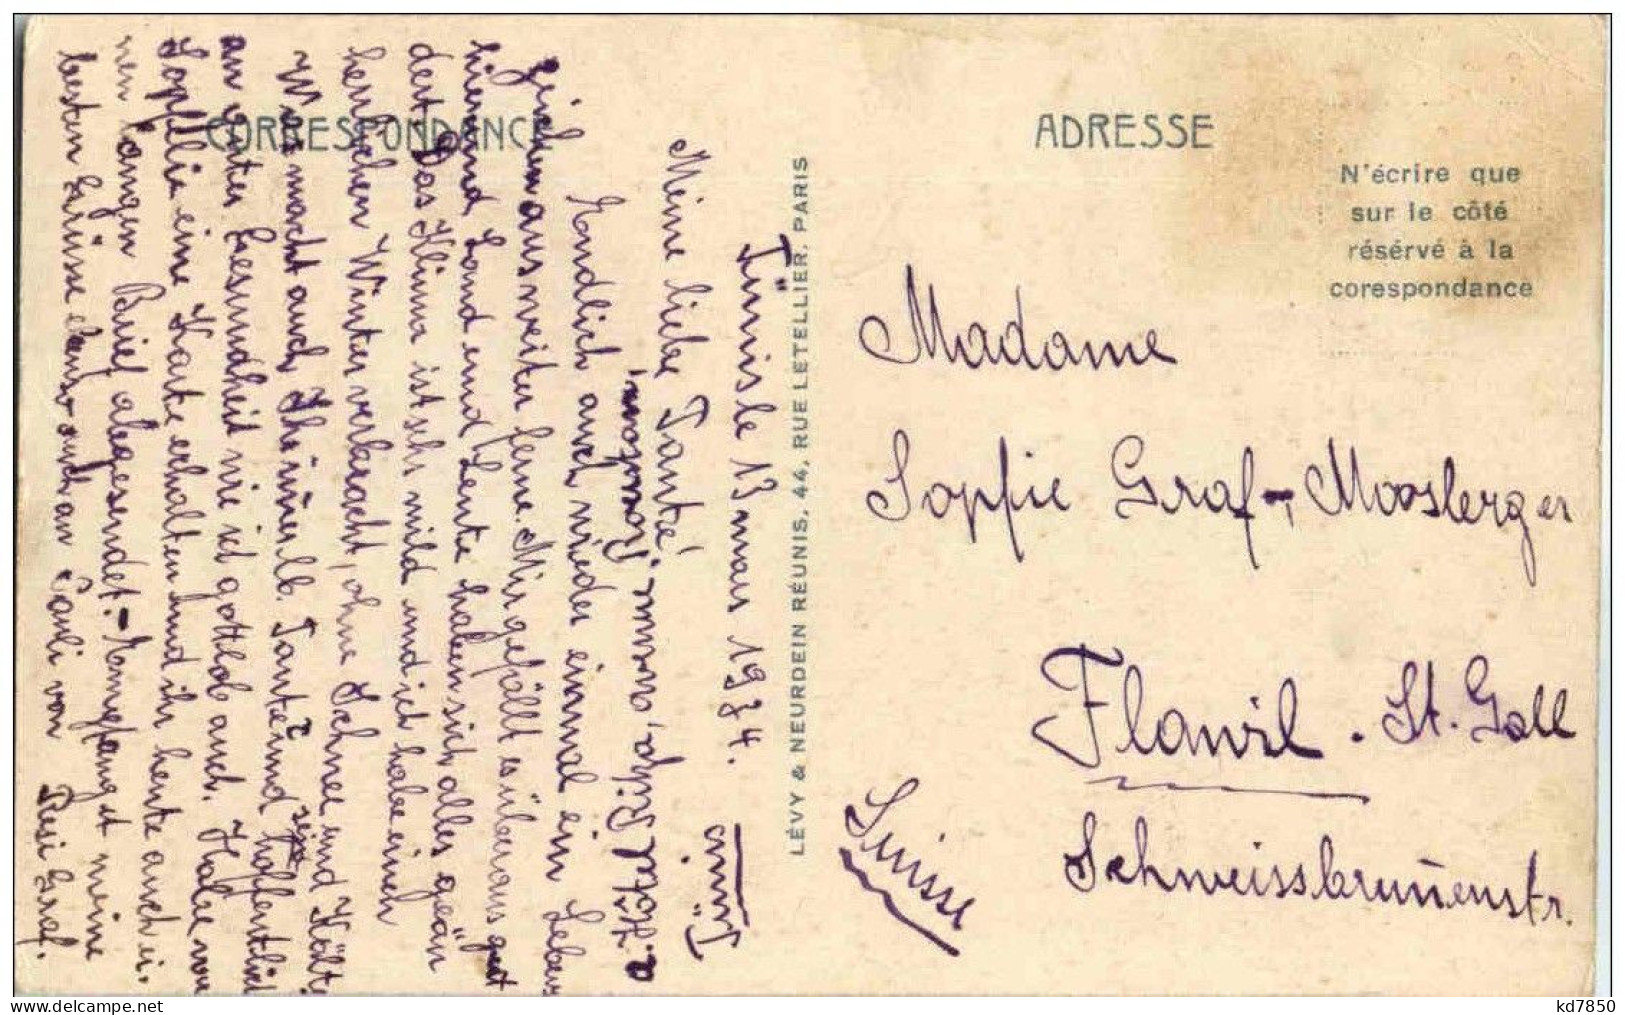 CORRESPONDANCE
Tunis le 13 mars 1934.
Meine liebe Tante!
Endlich auch wieder einmal ein Lebens
zeichen aus weiter ferne. Mir gefällt es überaus gut
hier und Land und Leute haben sich alles geän
dert. Das Klima ist sehr mild und ich habe einen
herlichen Winter verbracht, ohne Schnee und Költe
Was macht auch Ihr immer lb. Tante und seje hoffentlich
an guter Gesundheit wie ich gottlob auch. Habe von
Sophie eine Karte erhalten und ihr heute auch ei-
nen langen Brief abgesendet. - Empfanget meine
besten Grüsse ebenso auch an Pauli von Resi Graf.
a. Hôtel Ritz, avenue
Tunis
LÉVY & NEURDEIN RÉUNIS, 44, RUE LETELLIER, PARIS
ADRESSE
N'écrire que
sur le côté
résérvé à la
corespondance
Madame
Sophie Graf-Moosberger
Flawil. St. Gall
Schweissbrunnenstr.
Suisse
kd7850